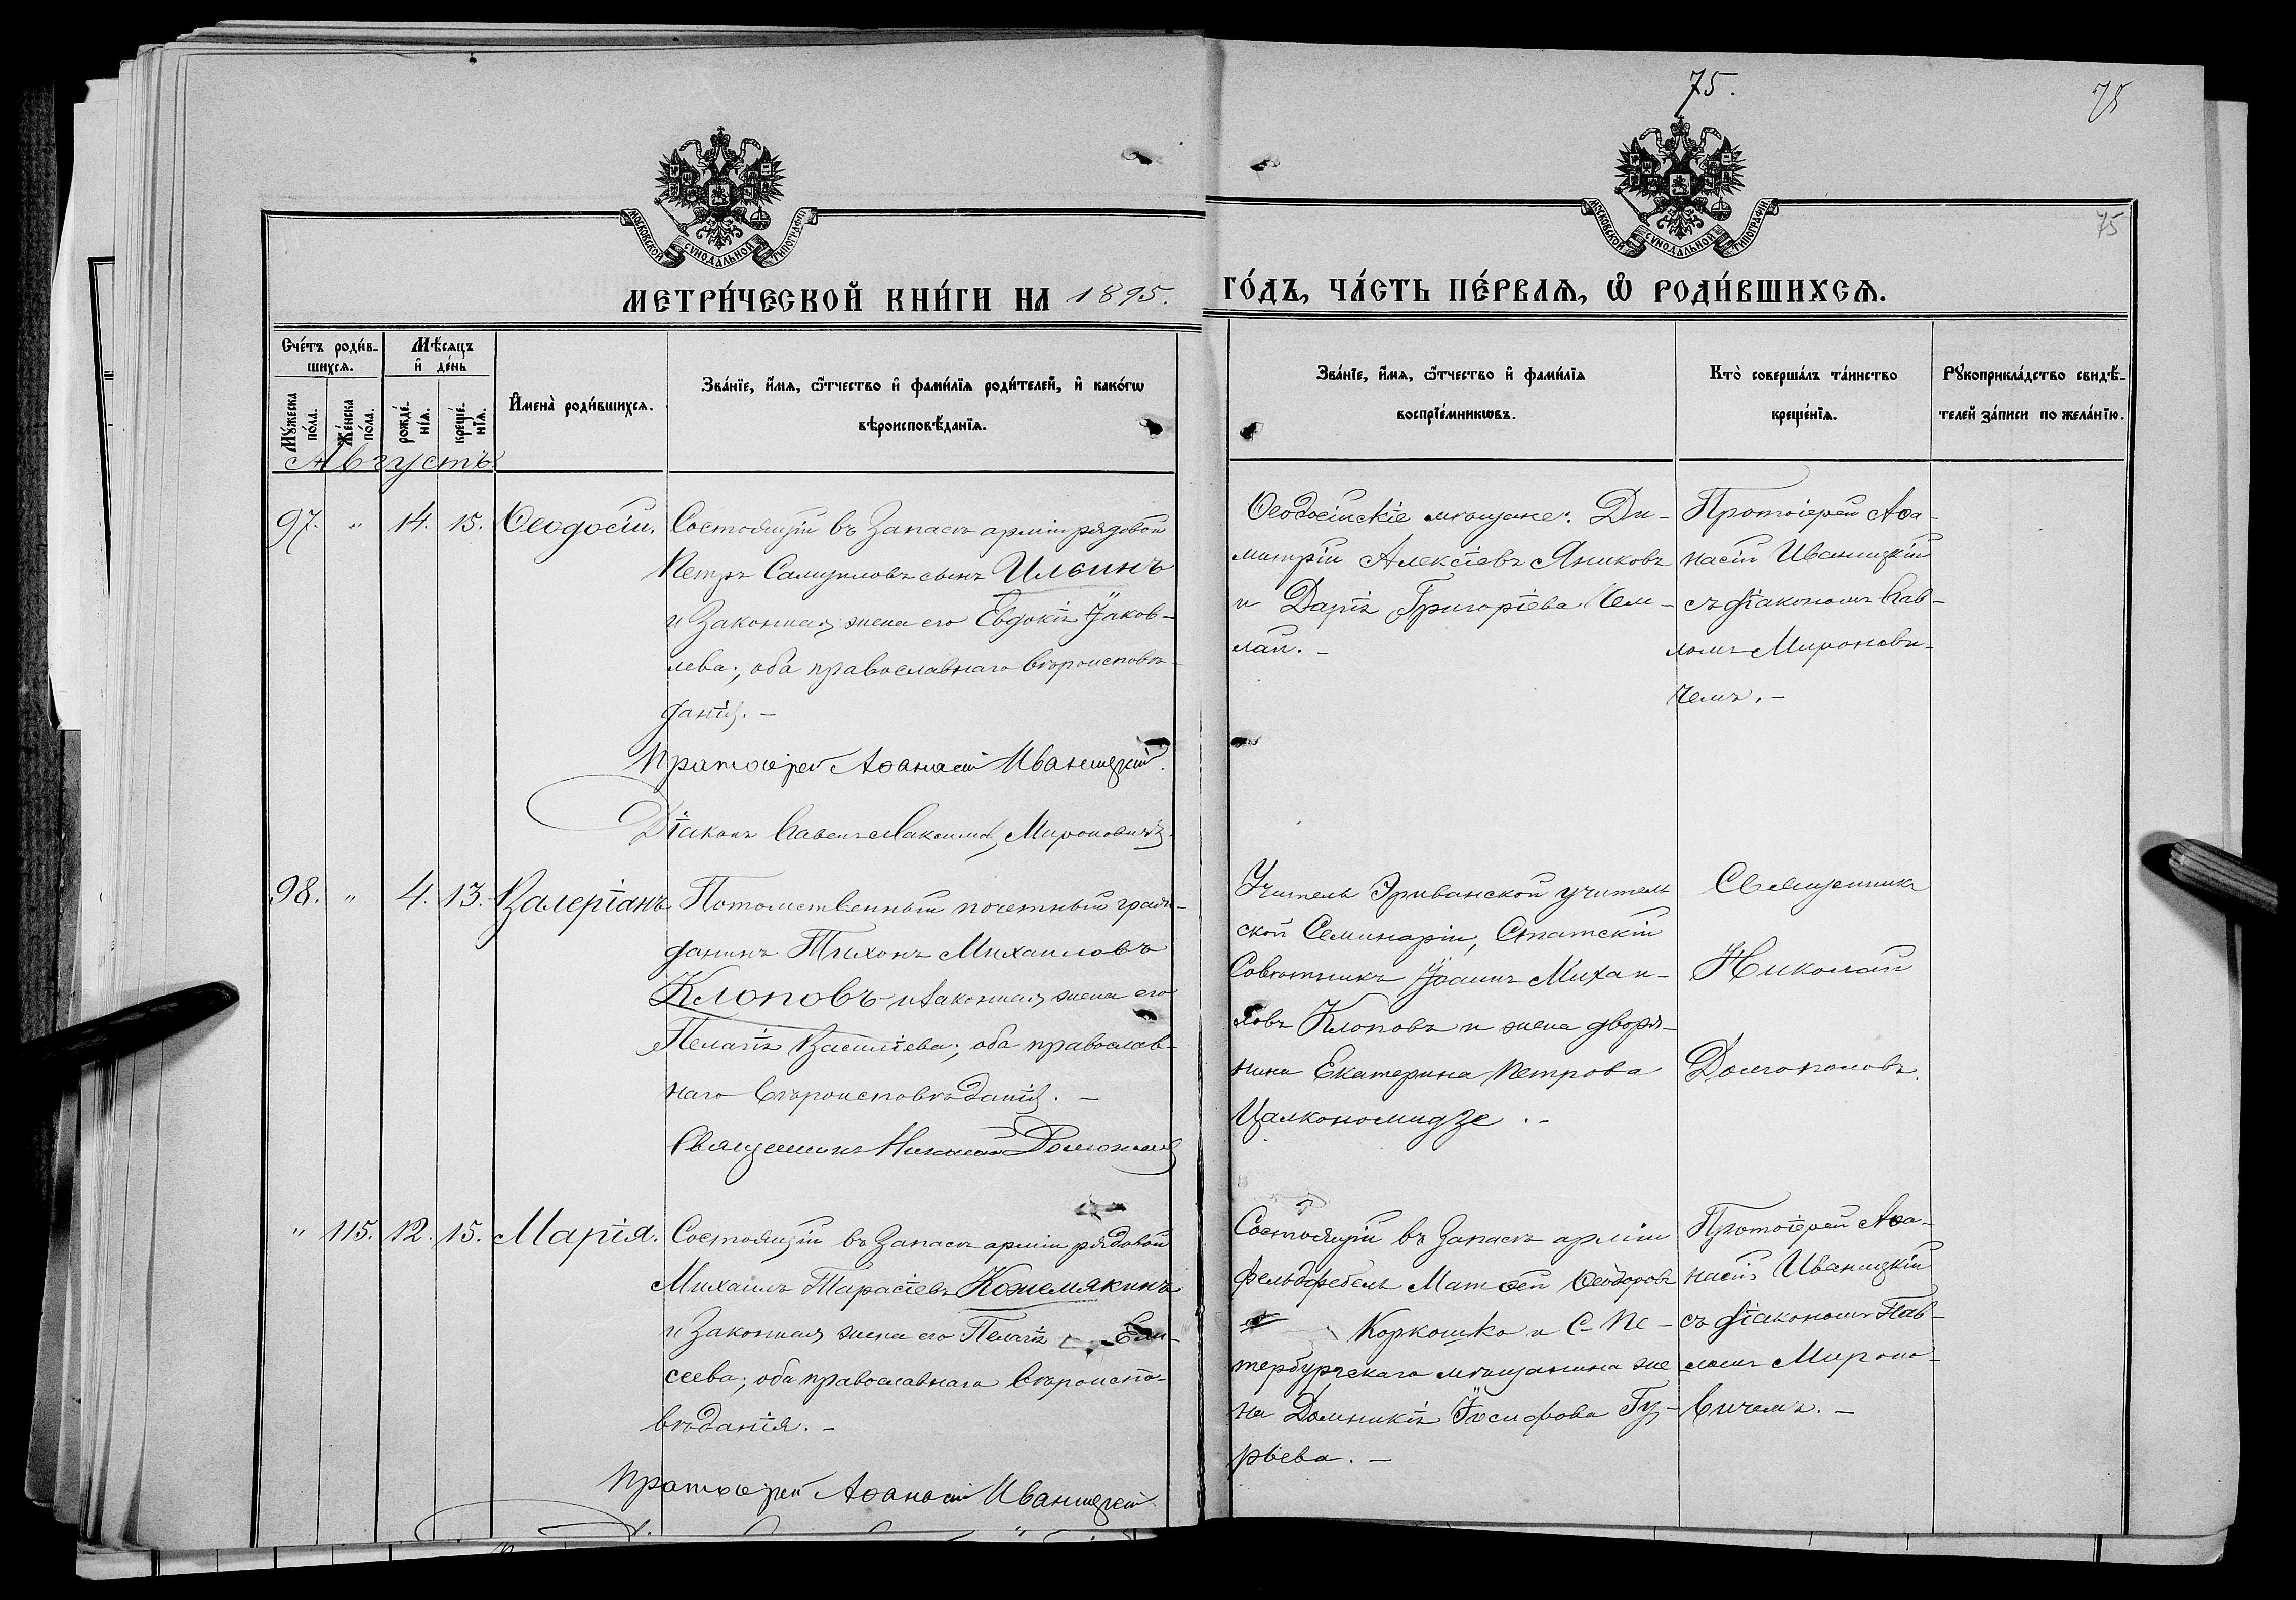 75.
75
75
МОСКОВСКОЙ СѴНОДАЛЬНОЙ ТИПОГРАФІИ
МОСКОВСКОЙ СѴНОДАЛЬНОЙ ТИПОГРАФІИ
МЕТРИ́ЧЕСКОЙ КНИ́ГИ НА 1895.
ГО́ДЪ, ЧА́СТЬ ПЕ́РВАЯ, Ѿ РОДИ́ВШИХСЯ.
Сче́тъ роди́в-
шихся.
Мꙋ́жеска по́ла.
Же́нска по́ла.
Мѣ́сяцъ
и҆ де́нь
рожде́-
нїя.
креще́-
нїя.
И҆мена̀ роди́вшихся.
Зва́нїе, и҆́мя, ѻ҆́тчество и҆ фами́лїя роди́телей, и҆ како́гѡ
вѣроисповѣ́данїя.
Зва́нїе, и҆́мя, ѻ҆́тчество и҆ фами́лїя
воспрїе́мникѡвъ.
Кто̀ соверша́лъ та́инство
креще́нїя.
Рꙋкоприкла́дство свидѣ́-
телей за́писи по жела́нїю.
Августъ
97. " 14. 15. Ѳеодосій.
Состоящій въ Запасѣ арміи рядовой
Петръ Самуиловъ сынъ Ильинъ
и Законная жена его Евдокія Іаков-
лева; оба православнаго вѣроисповѣ-
данія. –
Протоіерей Аѳанасій Иваницкій.
Діаконъ Павелъ Максимовъ Мироновичъ.
Ѳеодосійскіе мѣщане: Ди-
митрій Алексіевъ Яниковъ
и Дарія Григоріева Чем-
лай. –
Протоіерей Аѳа-
насій Иваницкій
съ діакономъ Пав-
ломъ Миронови-
чемъ. –
98. " 4. 13. Валеріанъ
Потомственный почетный граж-
данинъ Тихонъ Михаиловъ
Клоповъ и законная жена его
Пелагія Василіева; оба православ-
наго вѣроисповѣданія. –
Священникъ Николай Долгополовъ
Учитель Эриванской учитель
ской Семинаріи, Статскій
Совѣтникъ Іоаннъ Михаи-
ловъ Клоповъ и жена дворя-
нина Екатерина Петрова
Цалкономидзе. –
Священникъ
Николай
Долгополовъ.
" 115. 12. 15. Марія.
Состоящій въ Запасѣ арміи рядовой
Михаилъ Тарасіевъ Кожемякинъ
и Законная жена его Пелагія Ели-
сеева; оба православнаго вѣроиспо-
вѣданія. –
Протоіерей Аѳанасій Иваницкій.
Состоящій въ Запасѣ арміи
фельдфебель Матѳей Ѳеодоровъ
Коркошко и С-Пе-
тербургскаго мѣщанина же
на Домникія Іосифова Гу-
рьева. –
Протоіерей Аѳа-
насій Иваницкій
съ діакономъ Пав-
ломъ Мироно-
вичемъ. –